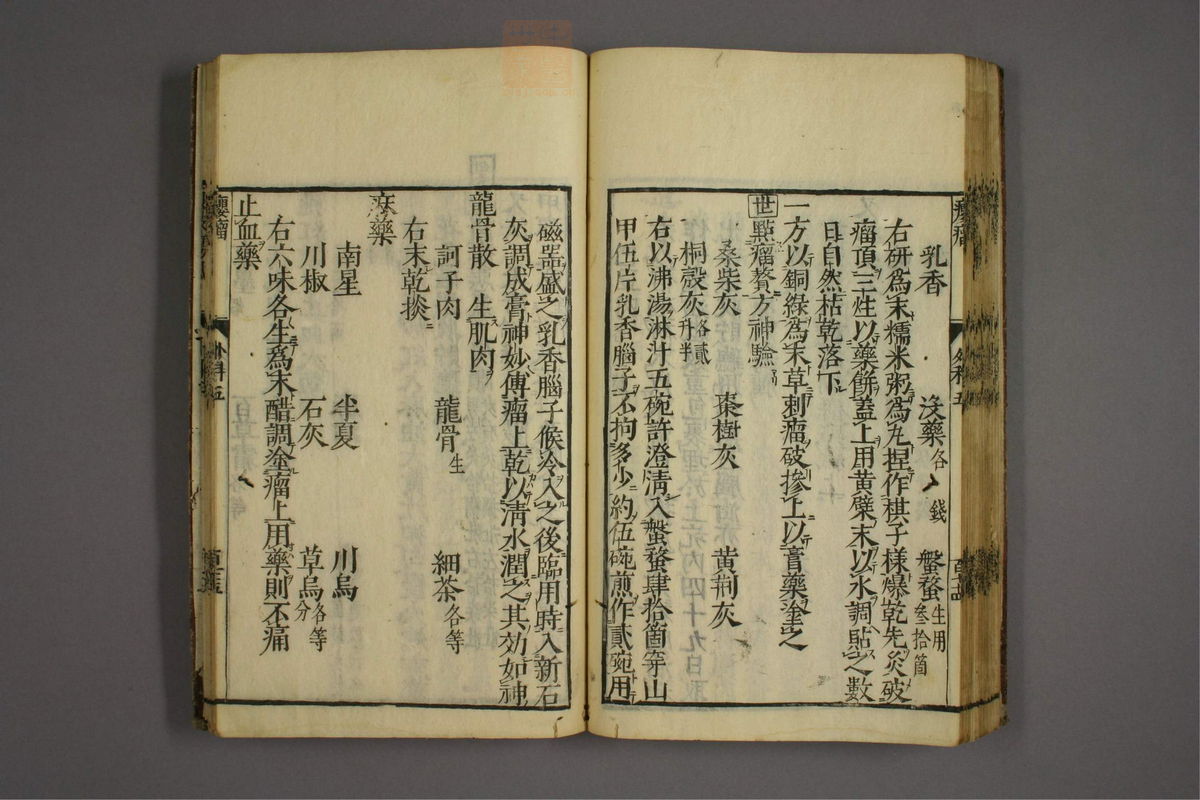 乳香 沒藥各一錢 盤蝥生用叁拾箇
右研爲末糯米粥爲丸捏作棋子樣爆乾先灸破
瘤頂三炷以藥餅蓋上用黄蘗末以水調貼之數
日自然枯乾落下
一方以銅綠爲末草刺瘤破摻上以膏藥塗之
世點瘤贅方神驗
桑柴灰 棗樹灰 黄荆灰
桐殻灰各貳升半
右以沸湯淋汁五碗許澄清入盤蝥肆拾箇穿山
甲伍片乳香腦子不拘多少約伍碗煎作貳碗用
磁器盛之乳香腦子候冷入之後臨用時入新石
灰調成膏神妙傅瘤上乾以清水潤之其効如神
龍骨散 生肌肉
訶子肉 龍骨生 細茶各等
右末乾掞
麻藥
南星 半夏 川烏
川椒 石灰 草烏各等分
右六味各生爲末醋調塗瘤上用藥則不痛
止血藥
癭瘤
外科五